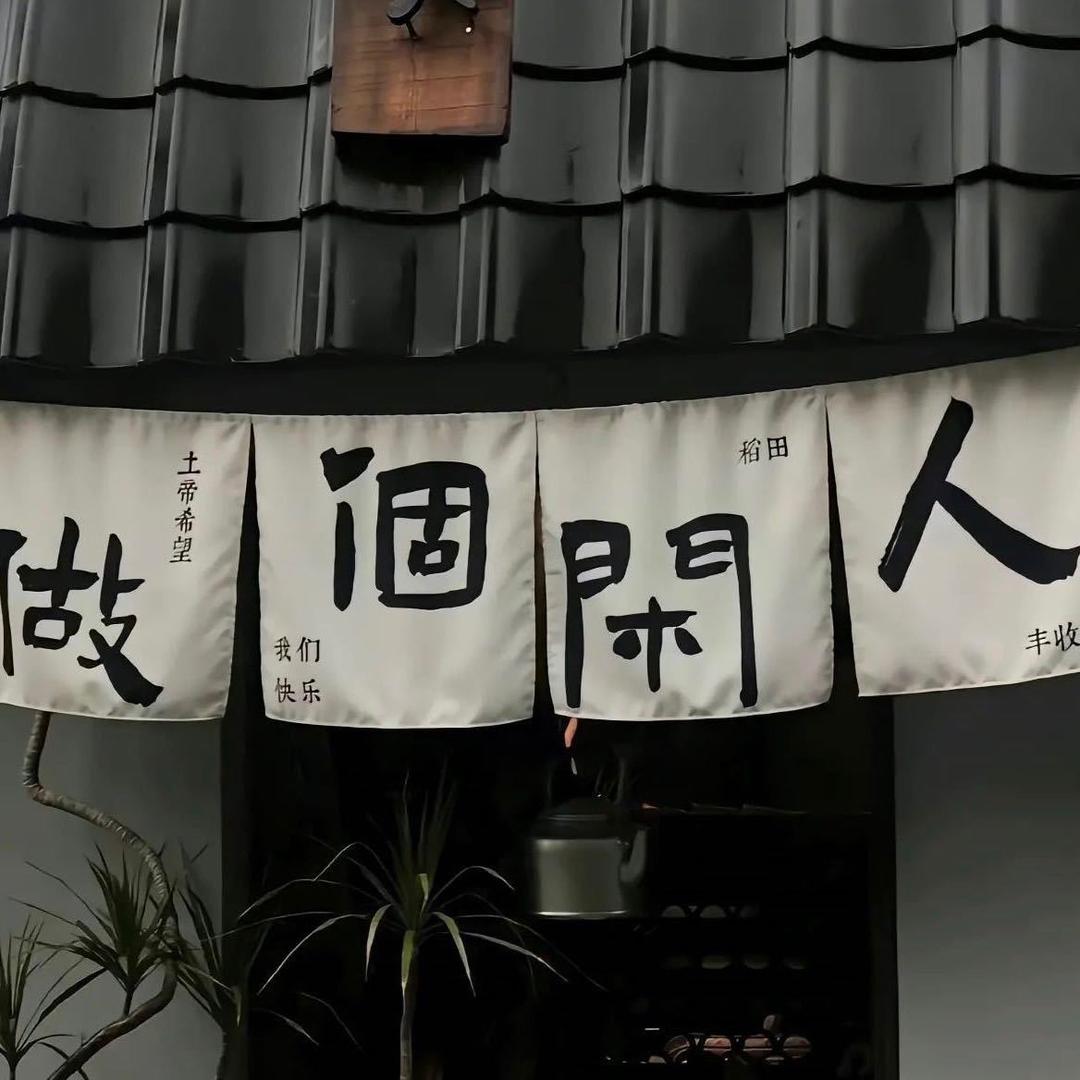 做個閑人
土帝希望
我们
快乐
稻田
丰收